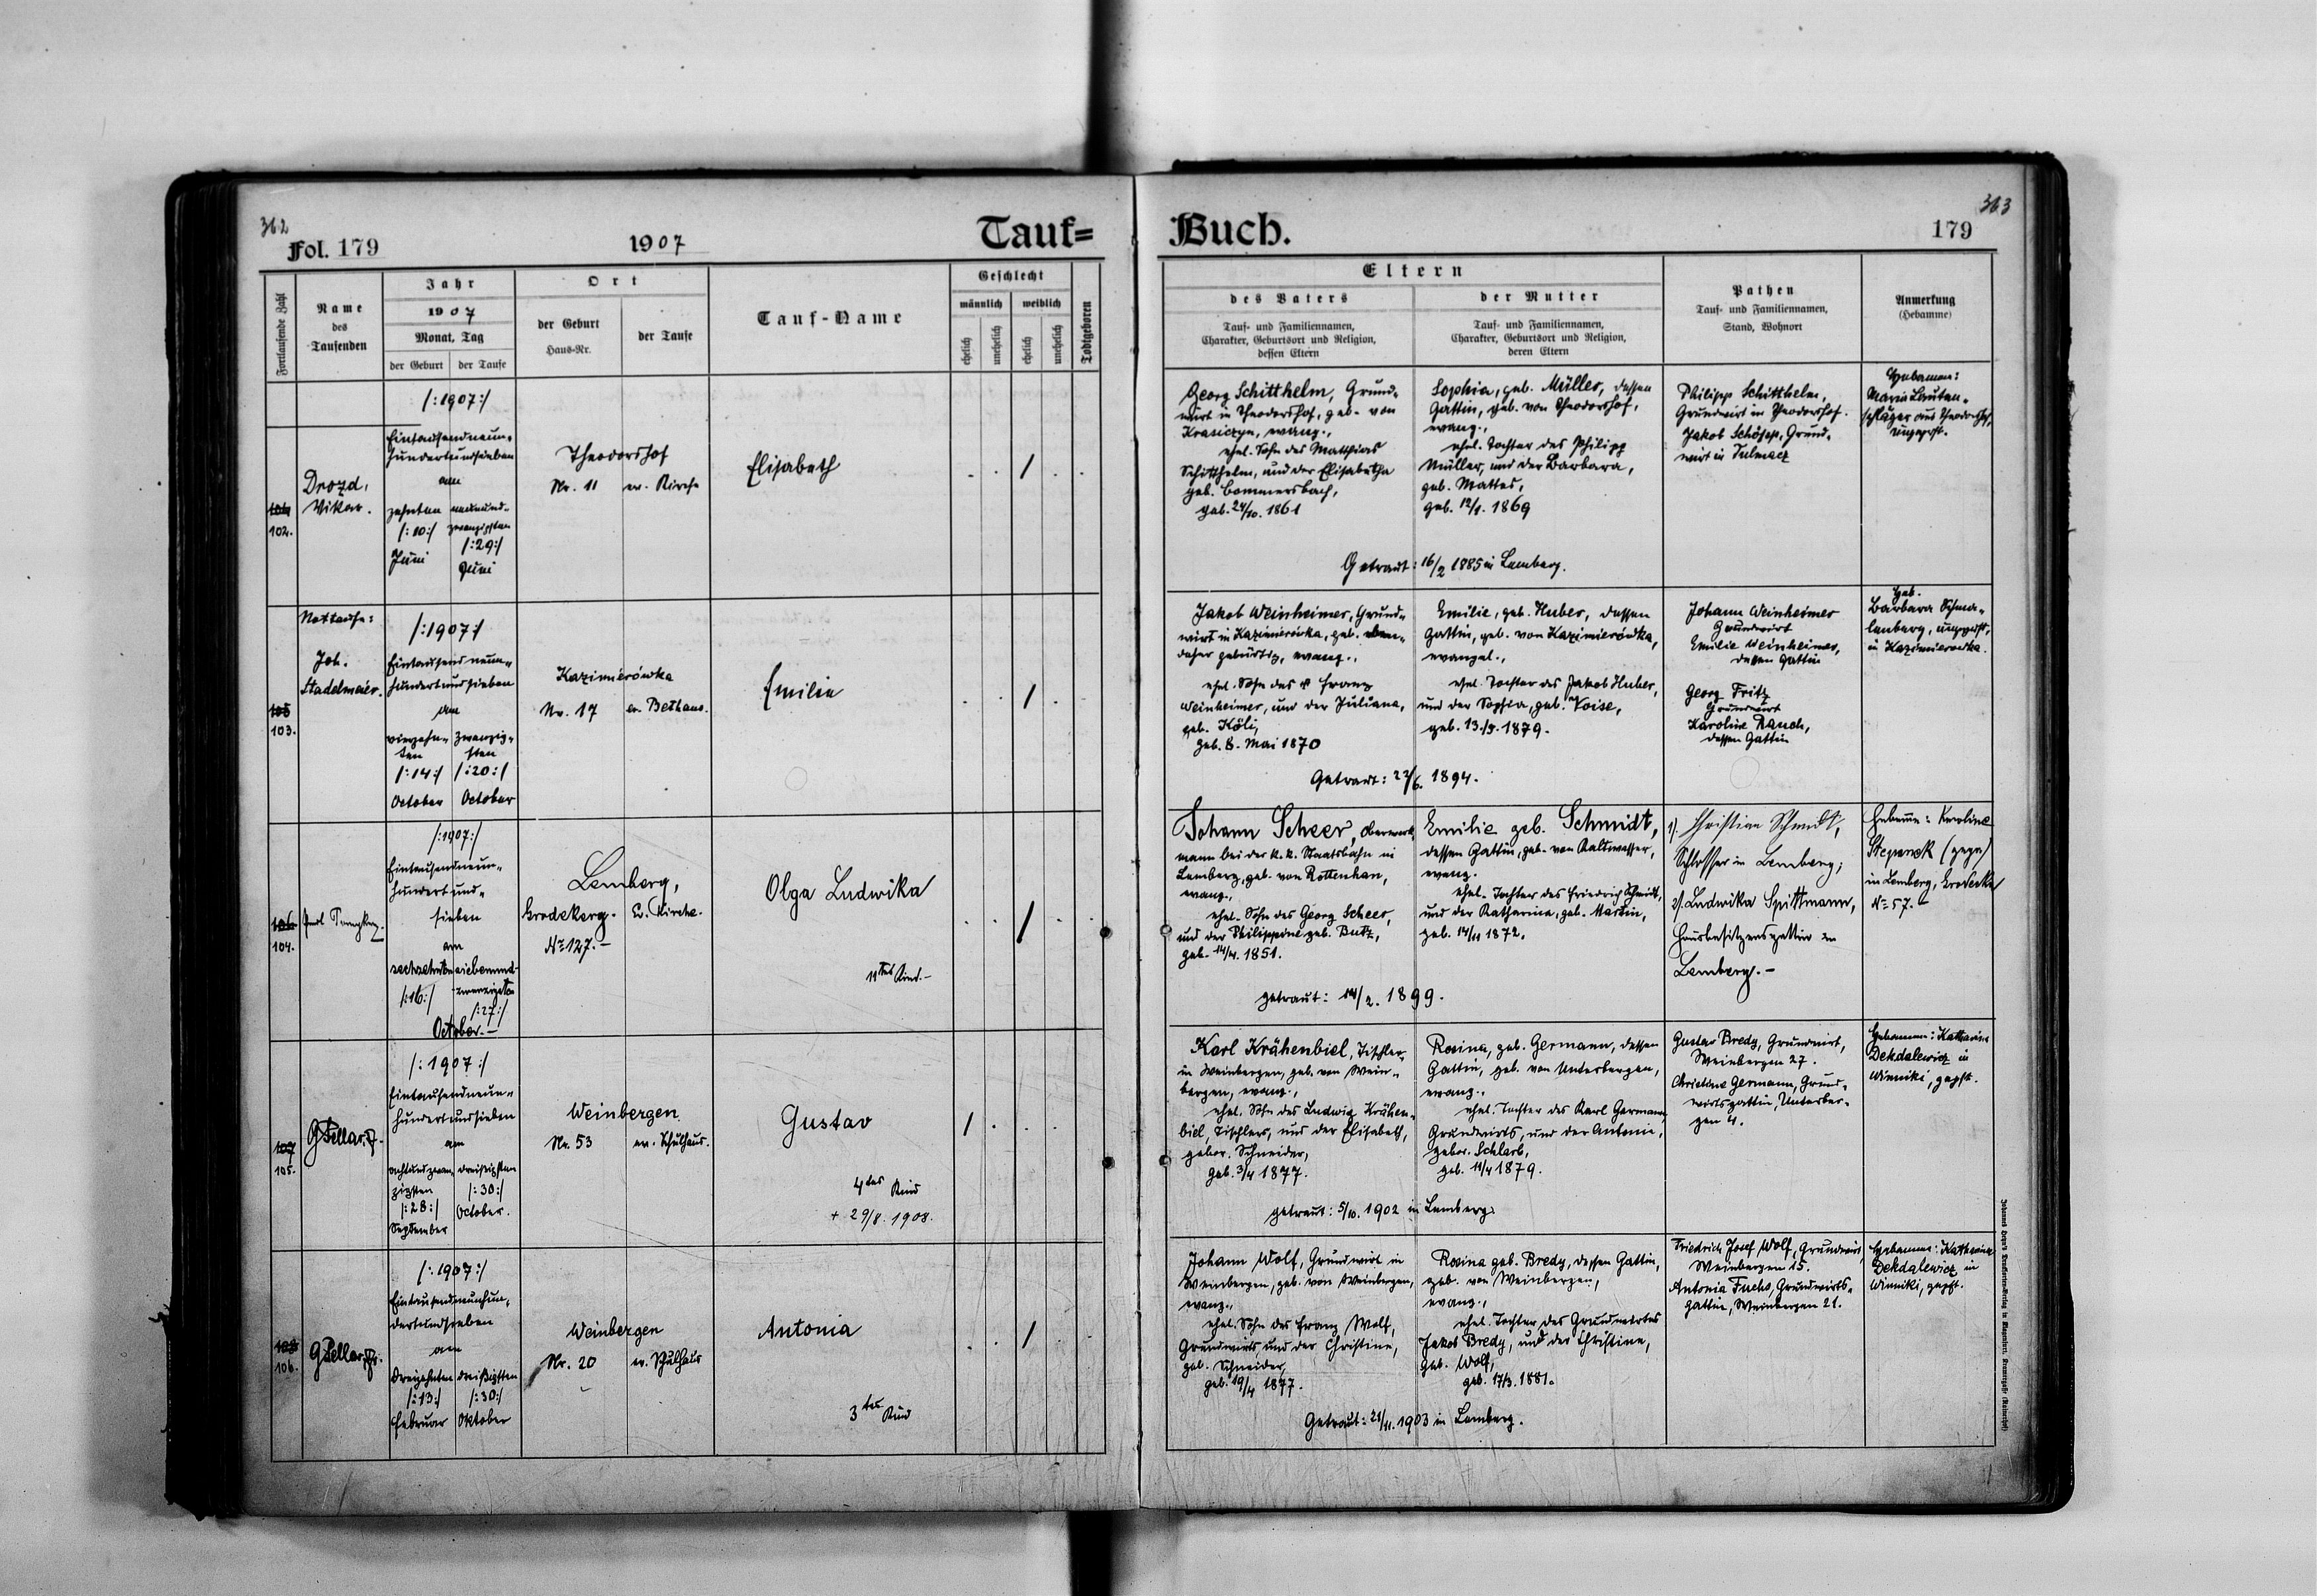 362
Fol. 179
1907
Tauf=
Fortlaufende Zahl
Name
des
Taufenden
Jahr
1907
Monat, Tag
der Geburt
der Taufe
Ort
der Geburt
Haus-Nr.
der Taufe
Tauf-Name
Geschlecht
männlich
weiblich
ehelich
unehelich
ehelich
unehelich
Todtgeboren
104
102.
Drozd,
Vikar.
/:1907:/
Eintausendneun-
hundertundsieben
am
zehnten
/:10:/
Juni
neunund-
zwanzigsten
/:29:/
Juni
Theodorshof
Nr. 11
ev. Kirche
Elisabeth
105
103.
Nottaufe:
Joh.
Stadelmeier.
/:1907:/
Eintausend neun-
hundert und sieben
am
vierzehn-
ten
/:14:/
October
zwanzig-
sten
/:20:/
October
Kazimierówka
Nr. 17
ev. Bethaus.
Emilie
106
104.
/:1907:/
Eintausendneun-
hundert und-
sieben
am
sechzehnten
/:16:/
siebenund-
zwanzigsten
/:27:/
October.-
Lemberg,
Grodekerg.
Nº 127.-
Ev. Kirche.
Olga Ludwika
11tes Kind.-
107
105.
/:1907:/
Eintausendneun-
hundertundsieben
am
achtundzwan-
zigsten
/:28:/
September
dreißigsten
/:30:/
October.
Weinbergen
Nr. 53
ev. Schulhaus.
Gustav
4tes Kind
+ 29/8. 1908.
108
106.
/:1907:/
Eintausendneunhun-
dertundsieben
am
dreizehnten
/:13:/
Februar
dreißigsten
/:30:/
Oktober
Weinbergen
Nr. 20
ev. Schulhaus
Antonia
3tes Kind
Buch.
363
179
Eltern
des Vaters
Tauf- und Familiennamen,
Charakter, Geburtsort und Religion,
dessen Eltern
der Mutter
Tauf- und Familiennamen,
Charakter, Geburtsort und Religion,
deren Eltern
Pathen
Tauf- und Familiennamen,
Stand, Wohnort
Anmerkung
(Hebamme)
Georg Schitthelm, Grund-
wirt in Theodorshof, geb. von
Krasiczyn, evang.,
ehel. Sohn des Matthias
Schitthelm, und der Elisabetha
geb. Bommersbach,
geb. 24/10. 1861
Sophia, geb. Müller, dessen
Gattin, geb. von Theodorshof,
evang.,
ehel. Tochter des Philipp
Müller, und der Barbara,
geb. Mattes,
geb. 12/1. 1869
Getraut: 16/2 1885 in Lemberg.
Philipp Schitthelm,
Grundwirt in Theodorshof.
Jakob Schöpp, Grund-
wirt in Tlumacz
Hebamme:
Maria Lauten-
schläger aus Theodorshof,
ungepr.
Jakob Weinheimer, Grund-
wirt in Kazimierówka, geb. eben-
daher gebürtig, evang.,
ehel. Sohn des Franz
Weinheimer, und der Juliana,
geb. Köli,
geb. 8. Mai 1870
Emilie, geb. Huber, dessen
Gattin, geb. von Kazimierówka,
evangel.,
ehel. Tochter des Jakob Huber,
und der Sophia, geb. Voise,
geb. 13./9. 1879.
Getraut: 27/6. 1894.
Johann Weinheimer
Grundwirt
Emilie Weinheimer,
dessen Gattin
Georg Fritz
Grundwirt
Karoline Rauch,
dessen Gattin
Heb.
Barbara Schma-
lenberg, ungepft.,
in Kazimierowka.
Johann Scheer, Oberwerk-
mann bei der k. k. Staatsbahn in
Lemberg, geb. von Rottenhan,
evang.,
ehel. Sohn des Georg Scheer,
und der Philippine geb. Butz,
geb. 14/4. 1851.
Emilie geb. Schmidt,
dessen Gattin, geb. von Kaltwasser,
evang.
ehel. Tochter des Friedrich Schmidt,
und der Katharina, geb. Martin,
geb. 14/11 1872.
getraut: 14/2. 1899.
1). Christian Schmidt,
Schlosser in Lemberg;
2). Ludwika Spittmann,
Hausbesitzersgattin in
Lemberg.-
Hebamme: Karoline
Stepanek (gepr)
in Lemberg, Grodecka
Nº 57.-
Karl Krähenbiel, Tischler
in Weinbergen, geb. von Wein-
bergen, evang.,
ehel. Sohn des Ludwig Krähen-
biel, Tischlers, und der Elisabeth,
gebor. Schneider,
geb. 3/4 1877.
Rosina, geb. Germann, dessen
Gattin, geb. von Unterbergen,
evang.,
ehel. Tochter des Karl Germann,
Grundwirts, und der Antonie,
gebor. Schlarb,
geb. 11/4 1879.
getraut: 5/10. 1902 in Lemberg.
Gustav Bredy, Grundwirt,
Weinbergen 27.
Christine Germann, Grund-
wirtsgattin, Unterber-
gen 4.
Hebamme: Katharina
Dekdalewicz in
Winniki, gepft.
Johann Wolf, Grundwirt in
Weinbergen, geb. von Weinbergen,
evang.,
ehel. Sohn des Franz Wolf,
Grundwirts, und der Christine,
geb. Schneider,
geb. 19/4 1877.
Rosina geb. Bredy, dessen Gattin,
geb. von Weinbergen,
evang.,
ehel. Tochter des Grundwirtes
Jakob Bredy, und der Christine,
geb. Wolf,
geb. 17/3. 1881.
Getraut: 21/11. 1903 in Lemberg.
Friedrich Josef Wolf, Grundwirt,
Weinbergen 15.
Antonia Fuchs, Grundwirts-
gattin, Weinbergen 21.
Hebamme: Katharina
Dekdalewicz in
Winniki, gepft.